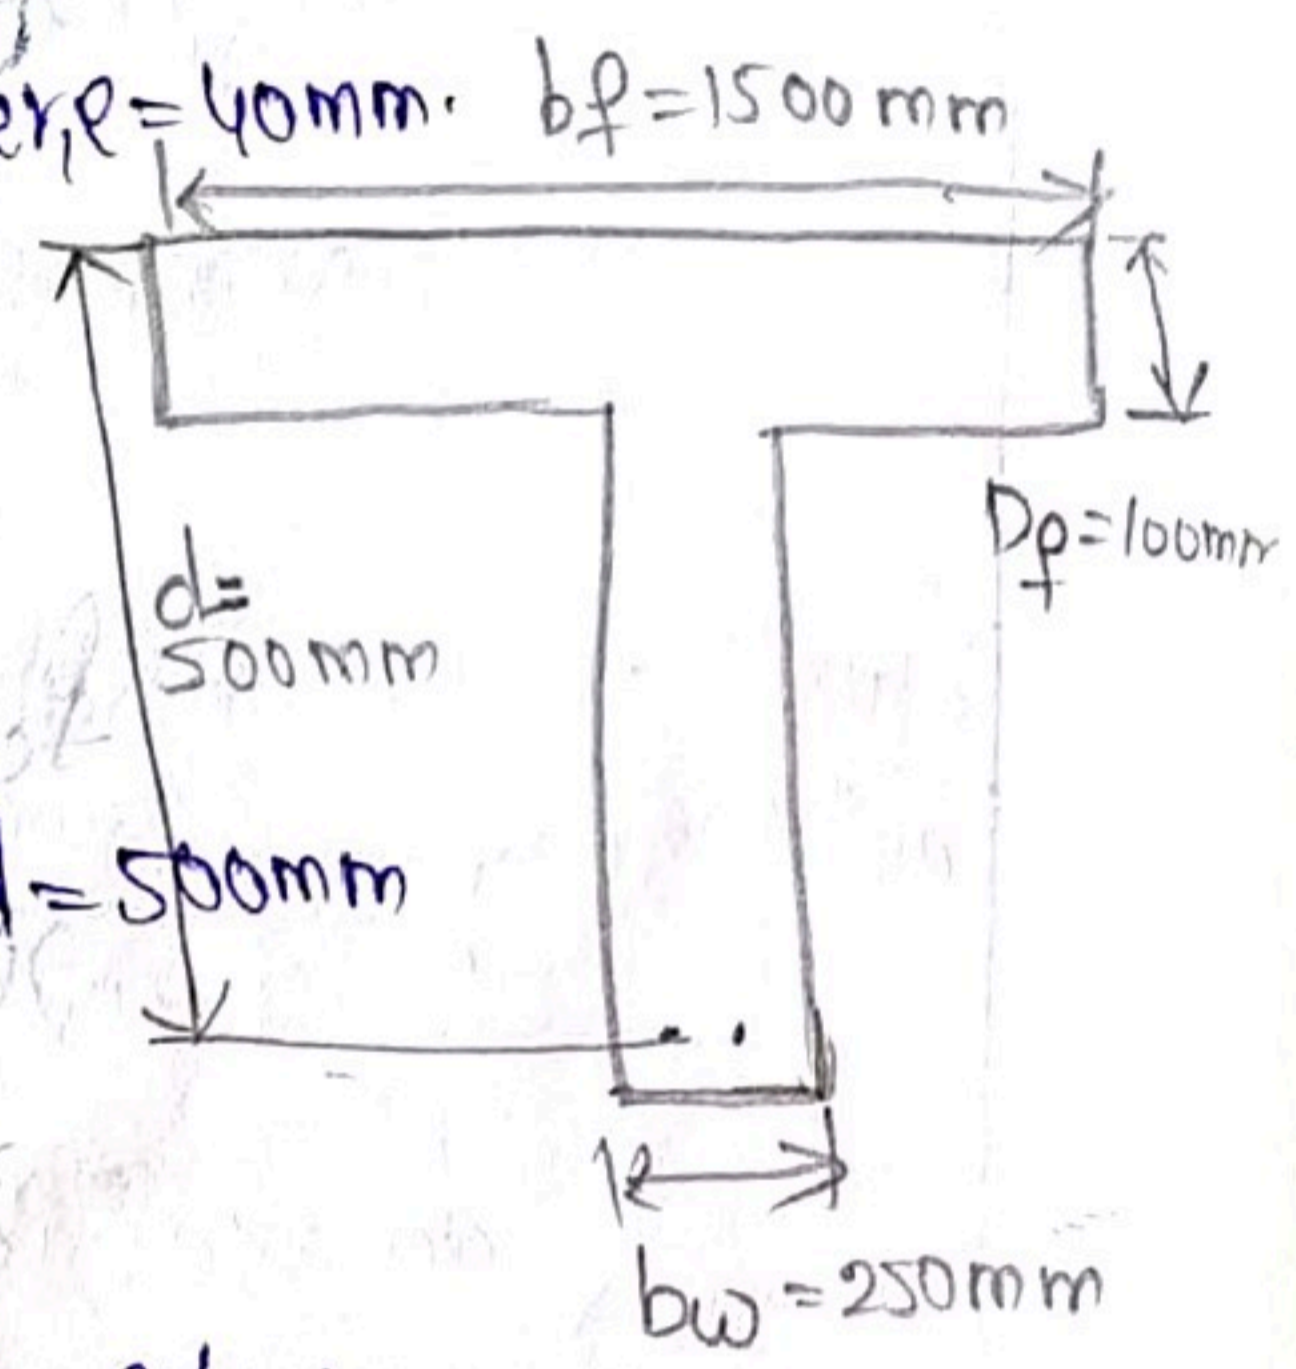 er,e = 40mm. bf = 1500 mm
Df = 100mm
d=
500mm
d = 500mm
bw = 250mm